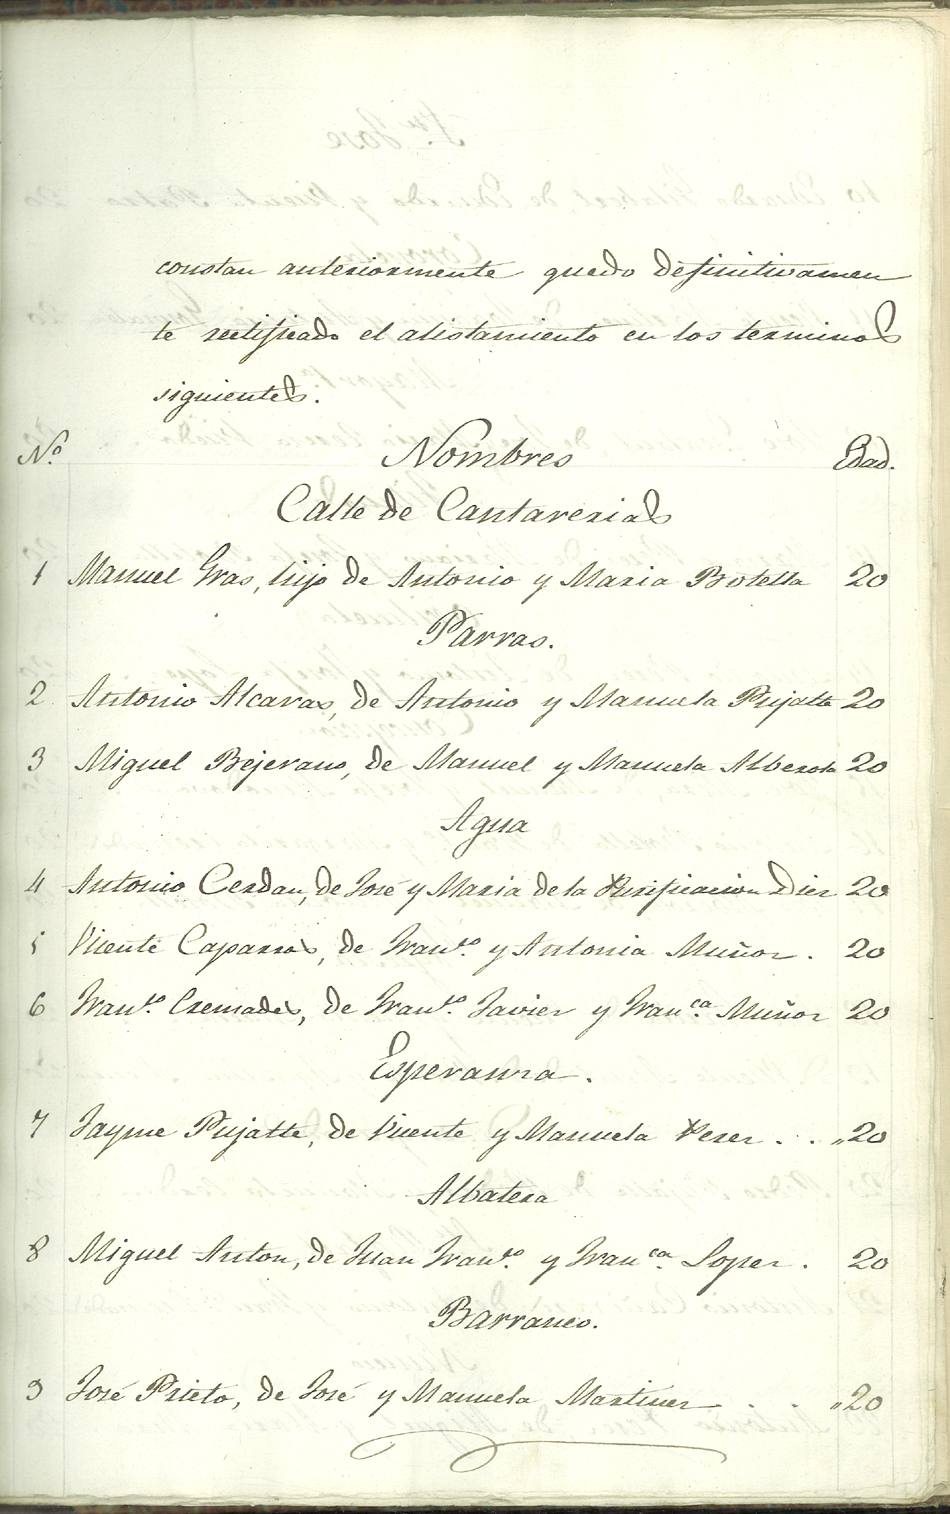 constan anteriormente quedo definitivamen
te rectificado el alistamiento en los terminos
siguientes.
No. Nombres Edad.
Calle de Cantarerias
1 Manuel Gras, hijo de Antonio y Maria Botella 20
Parras.
2 Antonio Alcaras, de Antonio y Manuela Pujalte 20
3 Miguel Bejerano, de Manuel y Manuela Alberola 20
Agua
4 Antonio Cerdan, de José y Maria de la Purificacion Dier 20
5 Vicente Caparros, de Franco. y Antonia Muñor. 20
6 Franco. Cremades, de Franco. Javier y Franca. Muñor 20
Esperanza.
7 Jayme Pujalte, de Vicente y Manuela Perer . . „20
Albatera
8 Miguel Anton, de Juan Franco. y Franca. Loper. 20
Barranco.
9 José Prieto, de José y Manuela Martiner . . „20